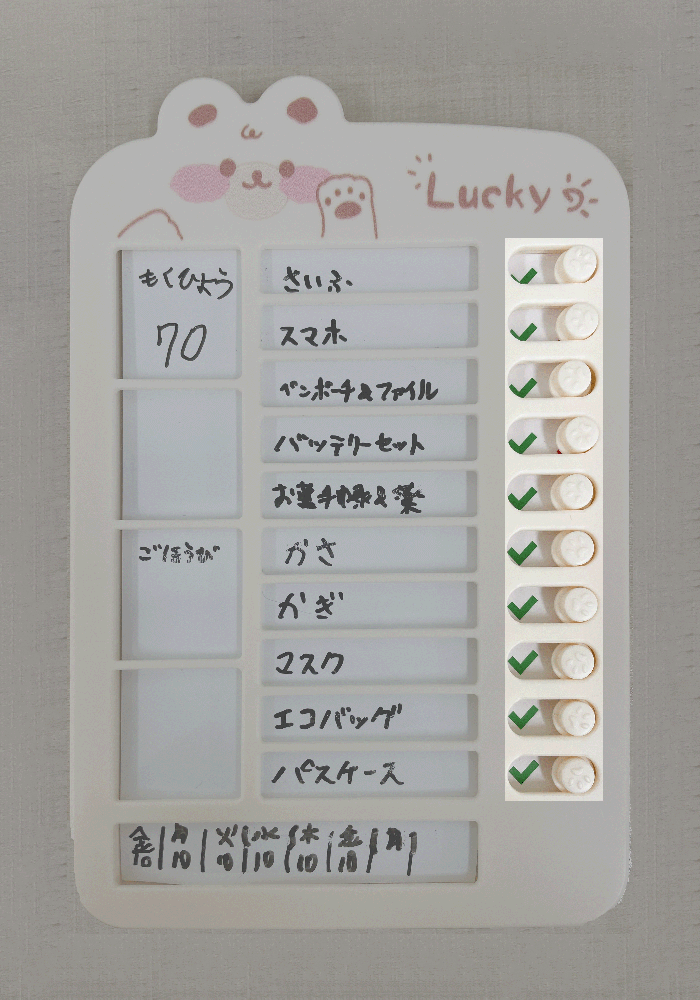 Lucky
もくひょう
70
ごほうび
さいふ
スマホ
ペンポーチ&ファイル
バッテリーセット
お菓子&薬
かさ
かぎ
マスク
エコバッグ
パスケース
金 月 火 水 木 金 月
10 10 10 10 10 10